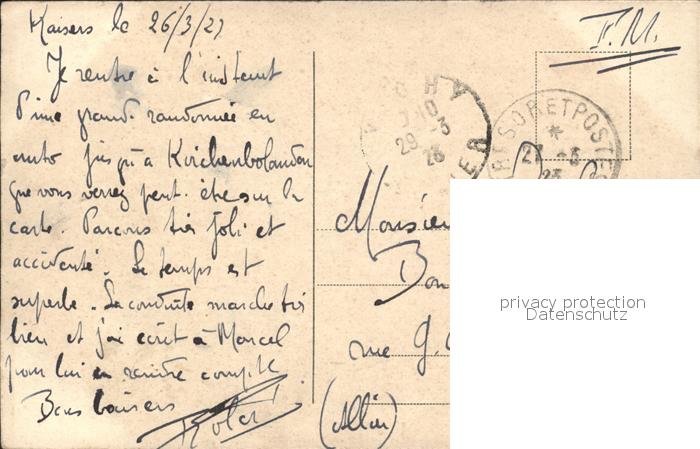 Kaisers le 26/3/23
F.M.
Je rentre à l'instant
d'une grande randonnée en
auto jusqu'à Kirchenbolanden
que vous verrez peut-être sur la
carte. Parcours très joli et
accidenté. Le temps est
superbe. La conduite marche très
bien et j'ai écrit à Marcel
pour lui en rendre compte.
Bons baisers
29 -3
23
TRESOR ET POSTES
*
-3
23
Monsieu
Bon
rue G.
(Allier)
privacy protection
Datenschutz